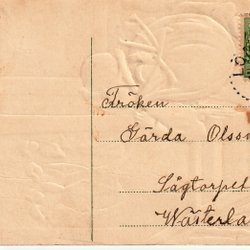 LÖ
Fröken
Gärda Olsso
Sågtorpet
Wästerla